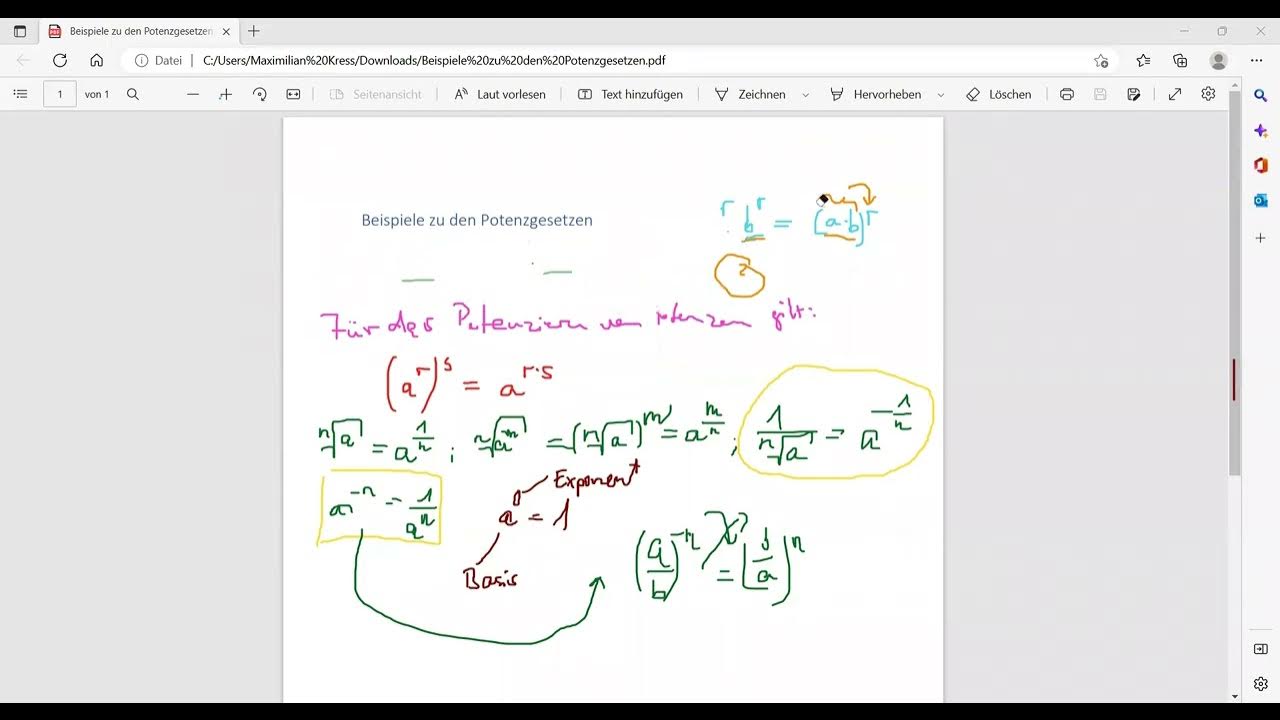 Beispiele zu den Potenzgesetzen
Datei C:/Users/Maximilian%20Kress/Downloads/Beispiele%20zu%20den%20Potenzgesetzen.pdf
1 von 1 Seitenansicht A Laut vorlesen T Text hinzufügen Zeichnen Hervorheben Löschen
r b^r = (a·b)^r
Beispiele zu den Potenzgesetzen
2
Für das Potenzieren von potenzen gilt:
(a^r)^s = a^{r·s}
ⁿ√a = a^{1/n} ; ⁿ√a^m = (ⁿ√a)^m = a^{m/n} ; 1/ⁿ√a = a^{-1/n}
Exponent
a^{-n} = 1/a^n a^0 = 1
(a/b)^{-n} = (b/a)^n
Basis